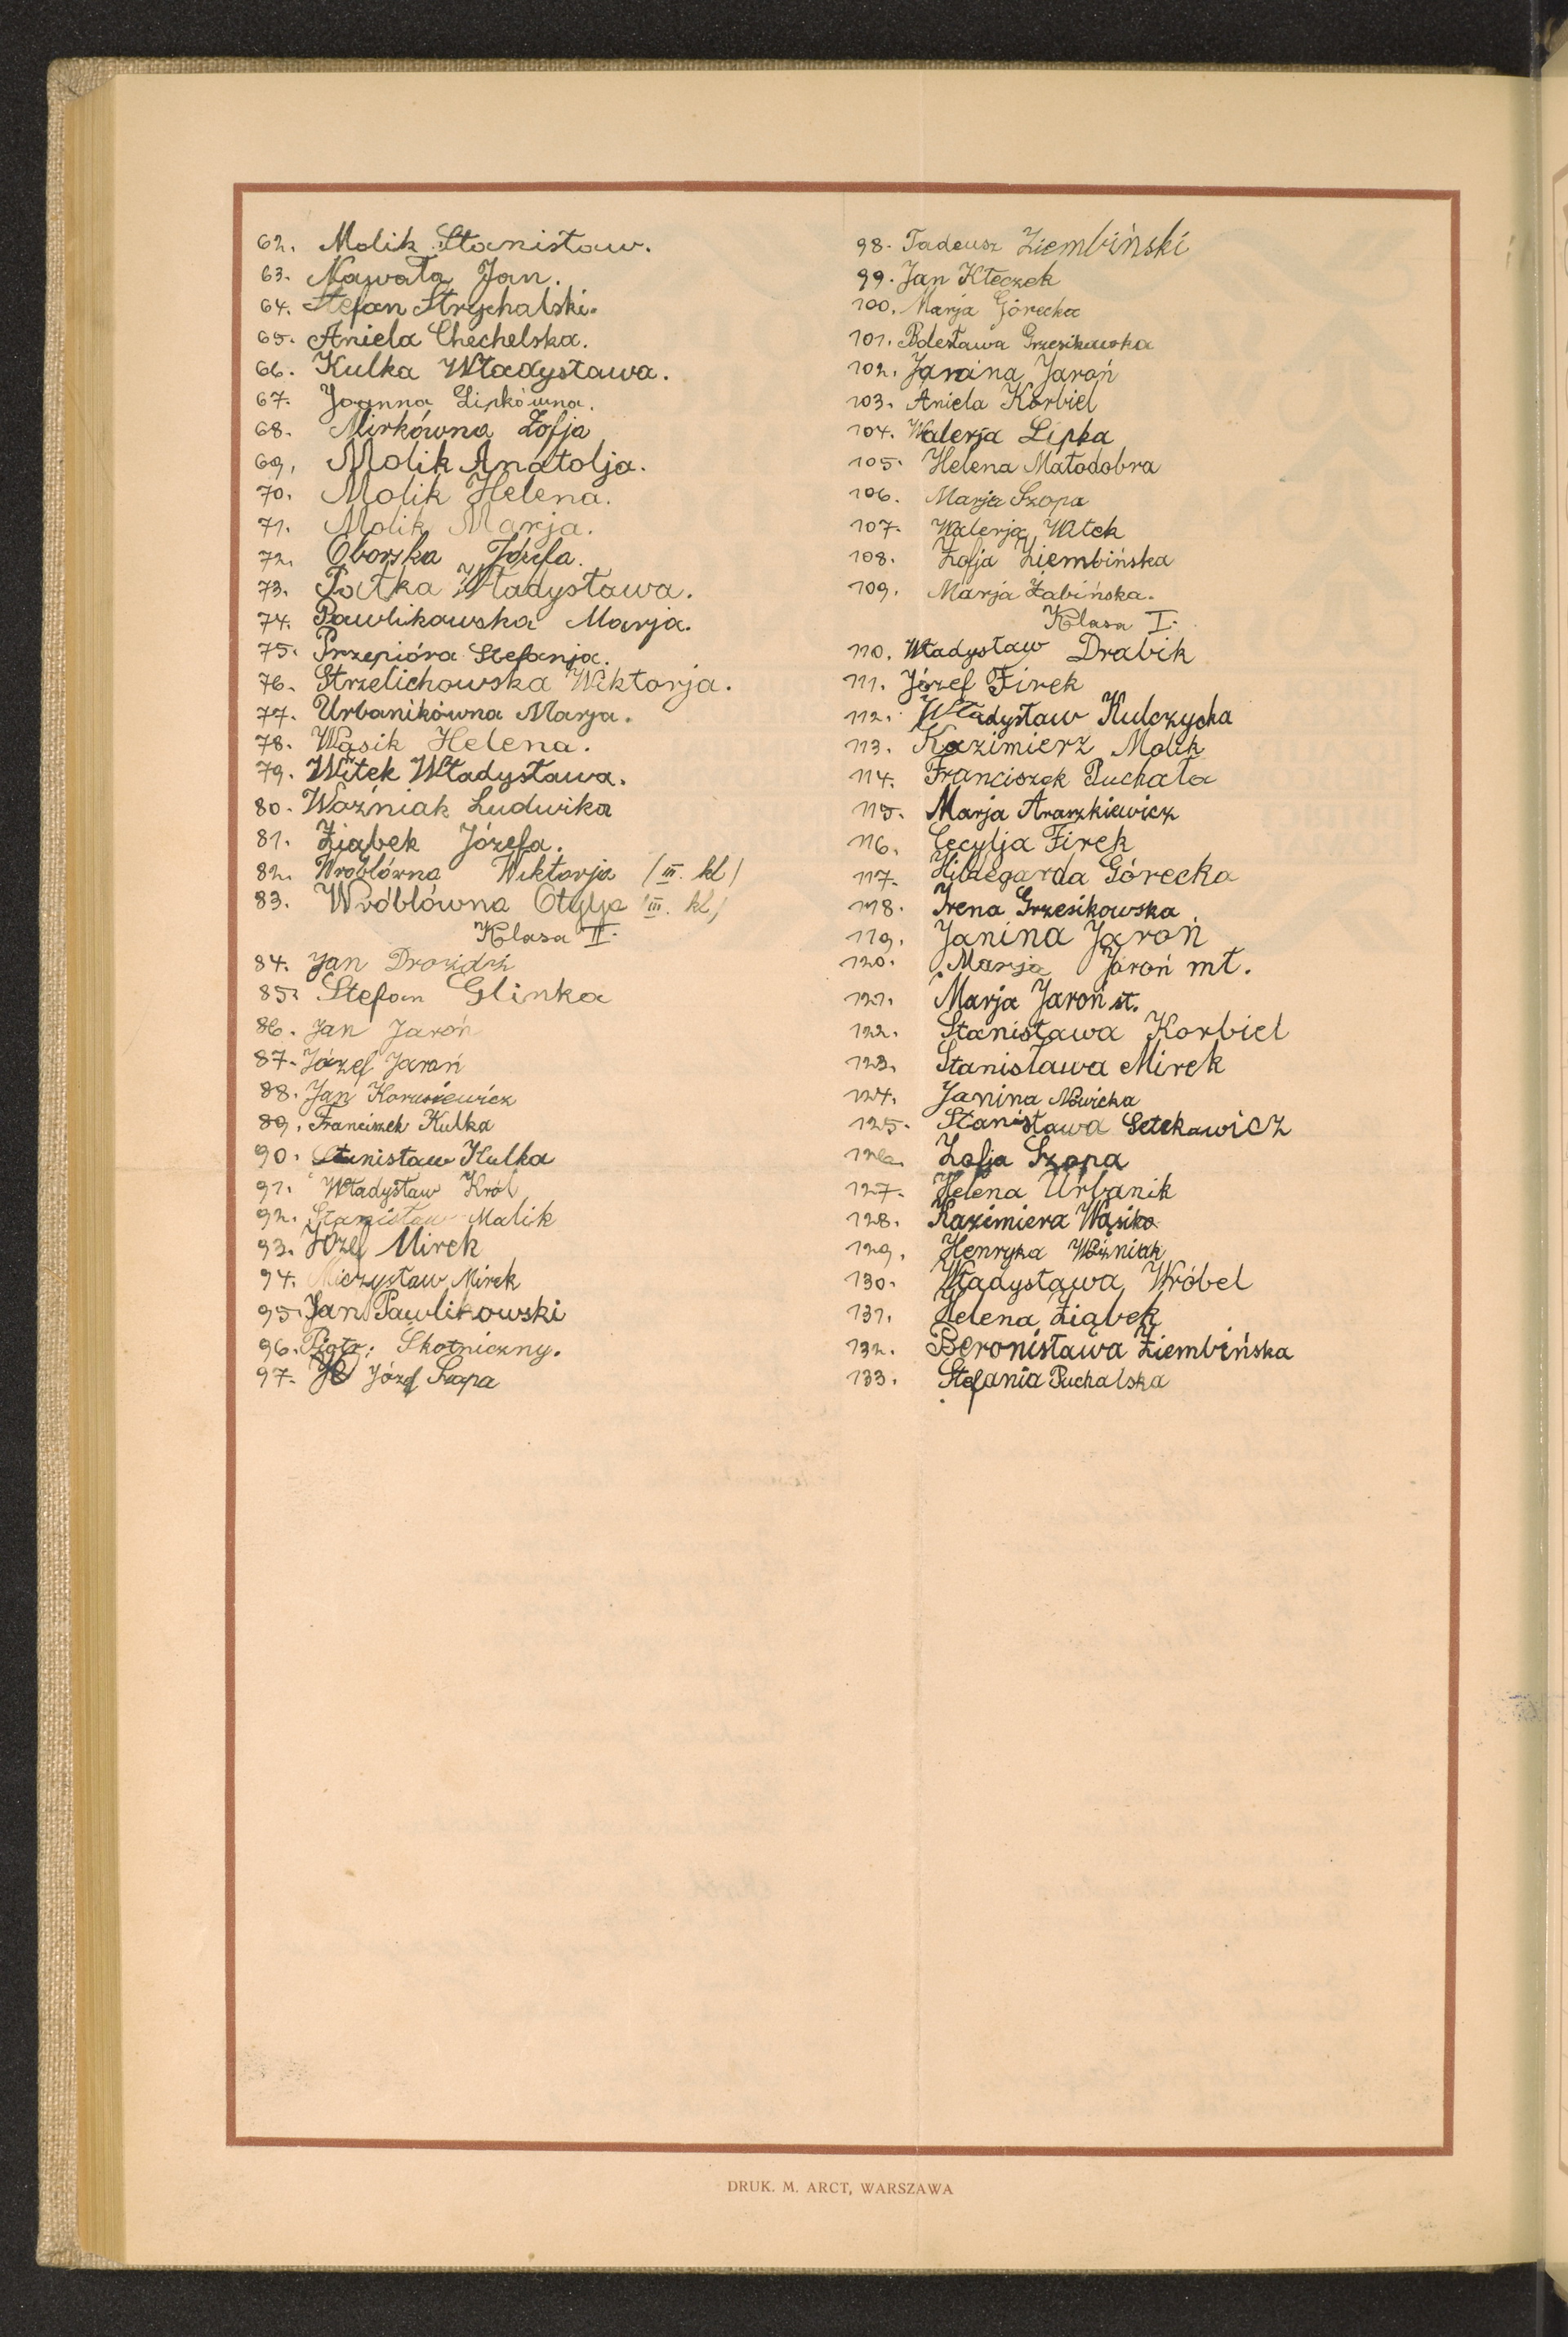 62. Molik Stanisław.
63. Nawała Jan.
64. Stefan Strychalski.
65. Aniela Chechelska.
66. Kulka Władysława.
67. Joanna Lipkówna.
68. Mirkówna Zofja
69. Molik Anatolja.
70. Molik Helena.
71. Molik Marja.
72. Oborska Józefa.
73. Patka Władysława.
74. Pawlikowska Marja.
75. Przepióra Stefanja.
76. Strzelichowska Wiktorja.
77. Urbanikówna Marja.
78. Wąsik Helena.
79. Witek Władysława.
80. Woźniak Ludwika
81. Ziąbek Józefa.
82. Wróblówna Wiktorja (III. kl)
83. Wróblówna Otylja (III. kl)
Klasa II.
84. Jan Drozidź
85. Stefan Glinka
86. Jan Jaroń
87. Józef Jaroń
88. Jan Korusiewicz
89. Franciszek Kulka
90. Stanisław Kulka
91. Władysław Król
92. Stanisław Malik
93. Józef Mirek
94. Mieczysław Mirek
95. Jan Pawlikowski
96. Piotr: Skotniczny.
97. Józef Szopa
98. Tadeusz Ziembiński
99. Jan Kłeczek
100. Marja Górecka
101. Bolesława Grzesikowska
102. Janina Jaroń
103. Aniela Korbiel
104. Walerja Lipka
105. Helena Małodobra
106. Marja Szopa
107. Walerja Witek
108. Zofja Ziembińska
109. Marja Żabińska.
Klasa I.
110. Władysław Drabik
111. Józef Firek
112. Władysław Kulczycka
113. Kazimierz Molik
114. Franciszek Puchała
115. Marja Araszkiewicz
116. Cecylja Firek
117. Hildegarda Górecka
118. Irena Grzesikowska
119. Janina Jaroń
120. Marja Jaroń mł.
121. Marja Jaroń st.
122. Stanisława Korbiel
123. Stanisława Mirek
124. Janina Nowicka
125. Stanisława Setekawicz
126. Zofja Szopa
127. Helena Urbanik
128. Kazimiera Wąsiko
129. Henryka Woźniak
130. Władysława Wróbel
131. Helena Ziąbek
132. Beronisława Ziembińska
133. Stefania Puchalska
DRUK. M. ARCT, WARSZAWA